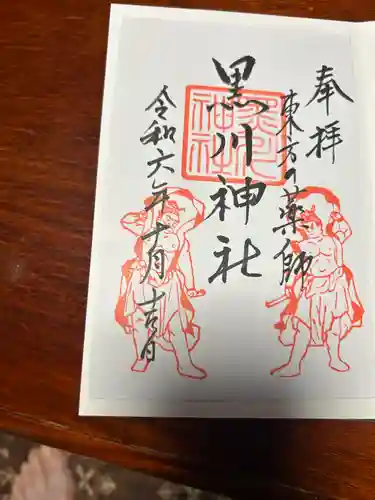 奉拝
東方の薬師
黒川神社
令和六年十月吉日